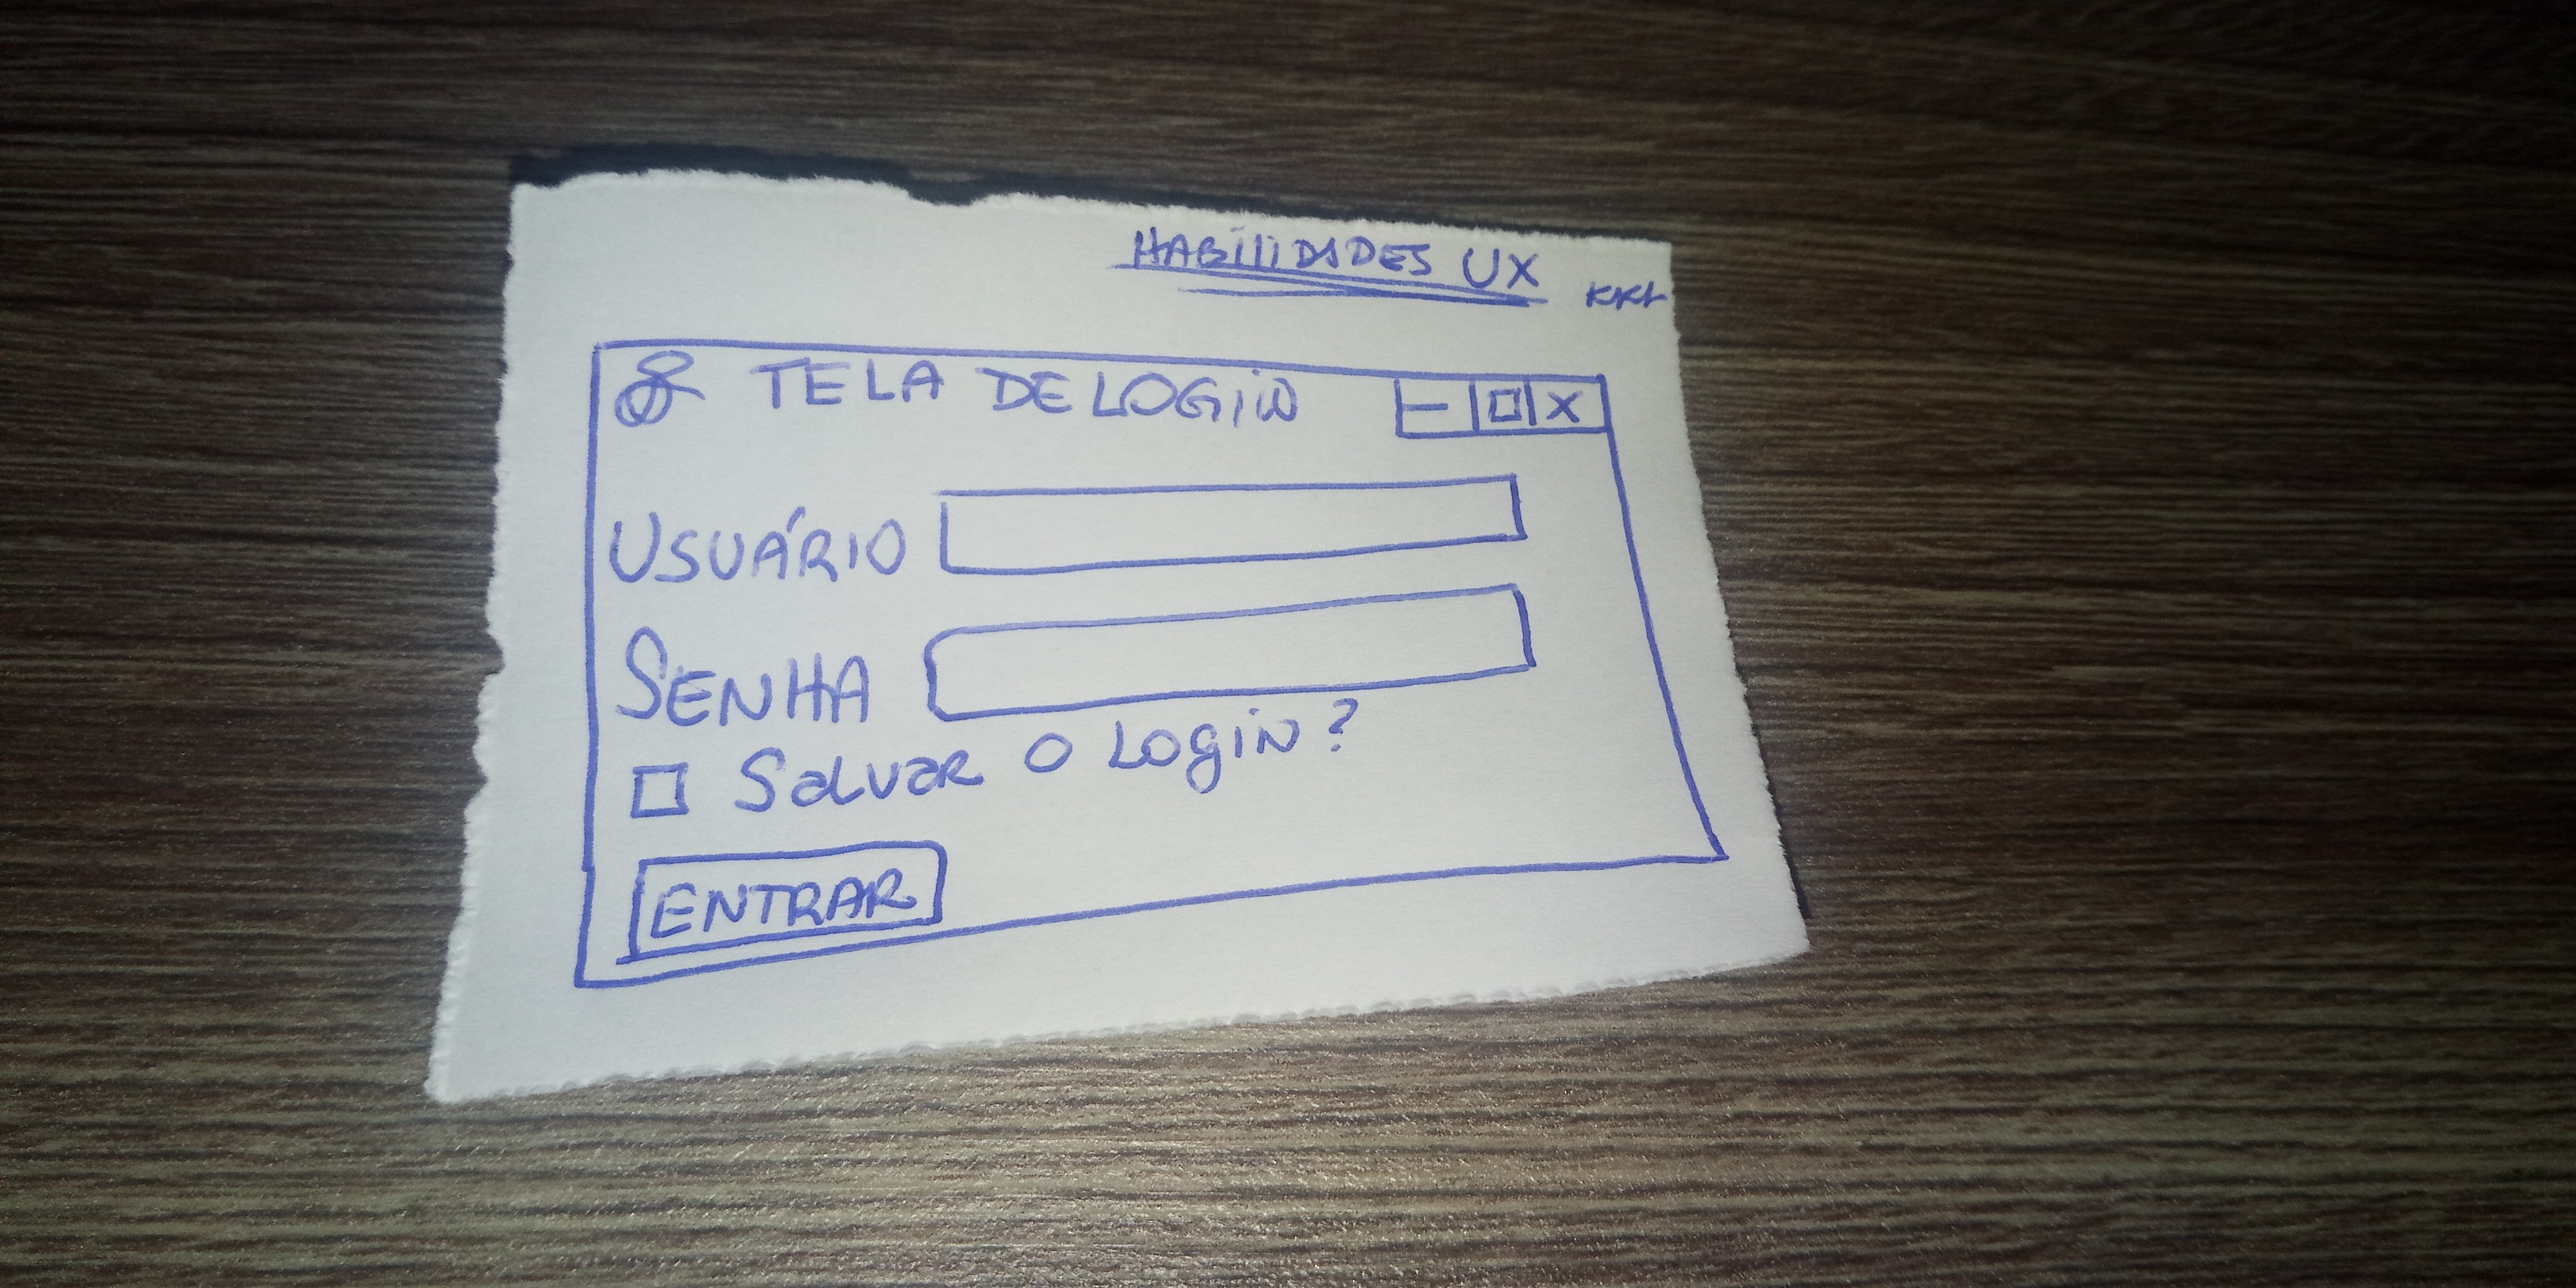 HABILIDADES UX
KKK
TELA DE LOGIN - X
USUÁRIO
SENHA
Salvar o Login?
ENTRAR